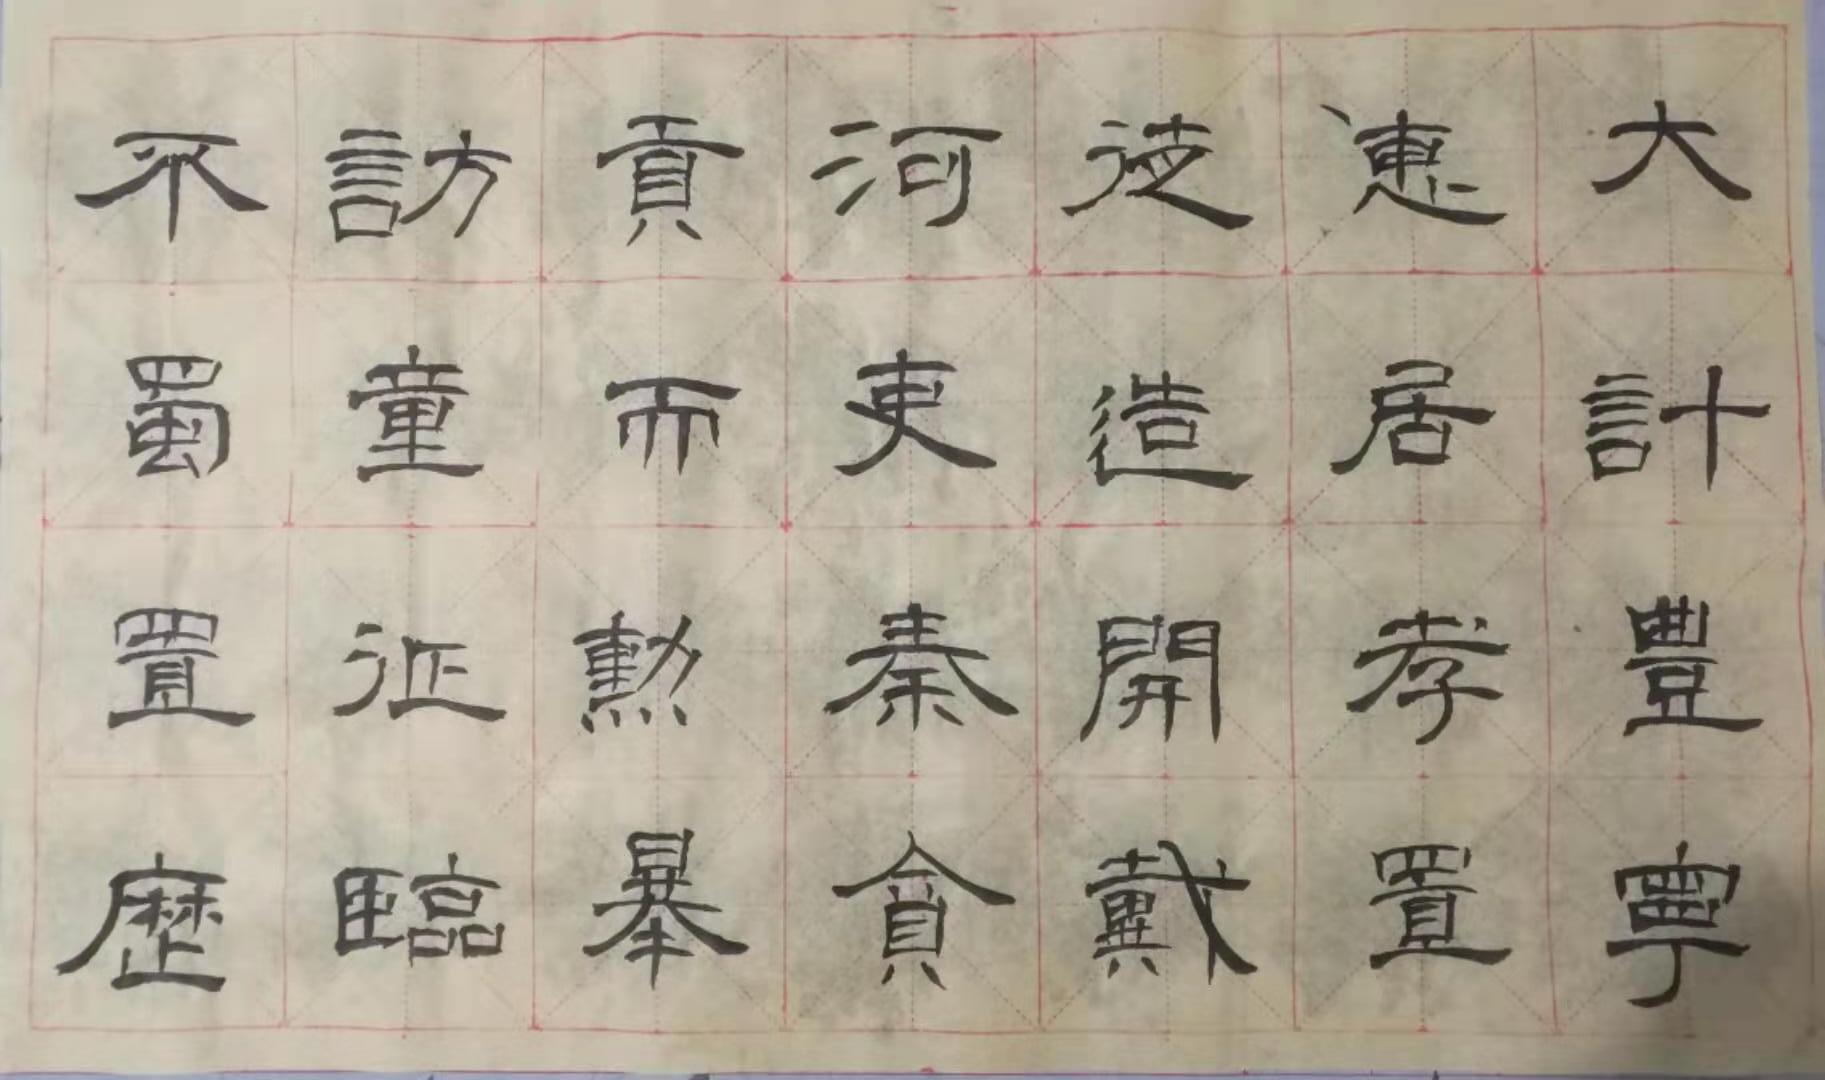 大計豊寧
惠居孝置
造開戴
河吏秦貪
貢而勲暴
訪童征臨
不蜀置歷